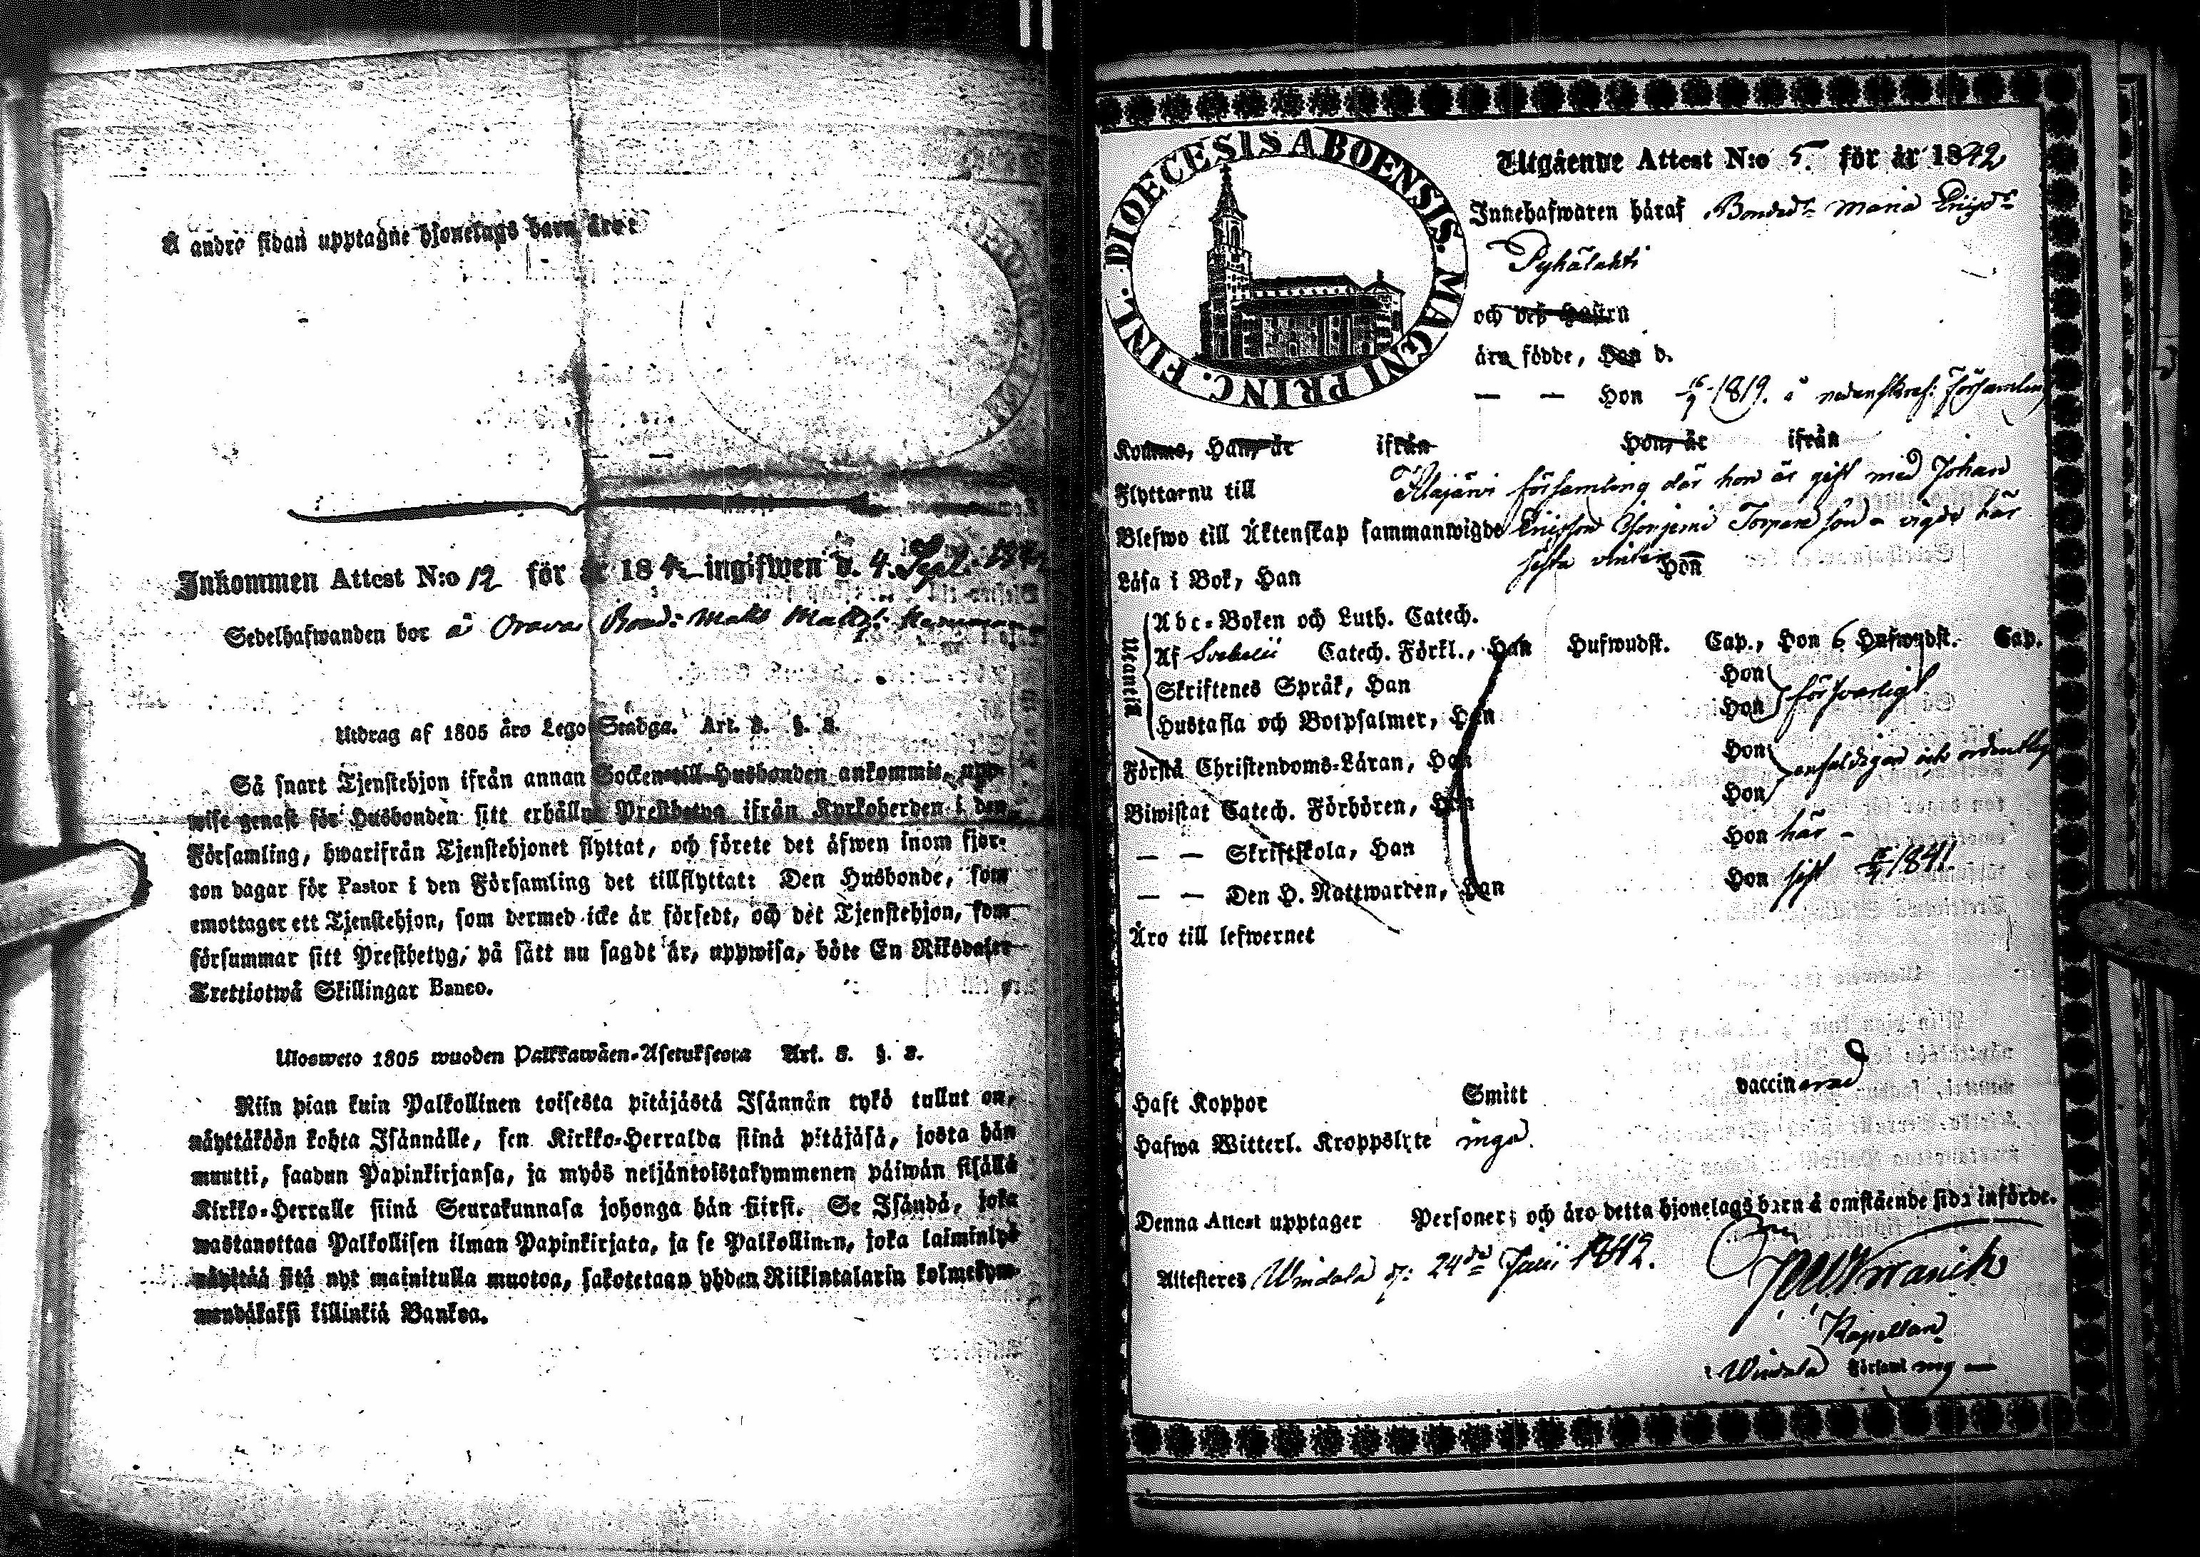 Å andre sidan upptagne hjonelags barn äro:
Inkommen Attest N:o 12 för år 1842 ingifwen d. 4. Sept. 1842
Sedelhafwanden bor å Oravas Bond: Matts Matts:
Utdrag af 1805 års Lego Stadga. Art. 3. §. 3.
Så snart Tjenstehjon ifrån annan Socken till Husbonden ankommit, upp-
wise genast för Husbonden sitt erhållne Prestbetyg ifrån Kyrkoherden i den
Församling, hwarifrån Tjenstehjonet flyttat, och förete det äfwen inom fjor-
ton dagar för Pastor i den Församling det tillflyttat: Den Husbonde, som
emottager ett Tjenstehjon, som dermed icke är försedt, och det Tjenstehjon, som
försummar sitt Prestbetyg, på sätt nu sagdt är, uppwisa, böte En Riksdaler
Trettiotwå Skillingar Banco.
Ulosweto 1805 wuoden Palkkawäen-Asetuksesta Art. 3. §. 3.
Niin pian kuin Palkollinen toisesta pitäjästä Isännän tykö tullut on,
näyttäköön kohta Isännälle, sen Kirkko-Herralda siinä pitäjäsä, josta hän
muutti, saadun Papinkirjansa, ja myös neljäntoistakymmenen päiwän sisällä
Kirkko-Herralle siinä Seurakunnasa johonga hän siirsi. Se Isändä, joka
wastanottaa Palkollisen ilman Papinkirjata, ja se Palkollinen, joka laiminlyö
näyttää sitä nyt mainitulla muotoa, sakotetaan yhden Riikintalarin kolmekym-
mendäkaksi killinkiä Bankoa.
DIOECESIS ABOENSIS. MAGNI PRINC. FINL.
Utgående Attest N:o 5. för år 1842
Innehafwaren häraf Bonded:r Maria Ericsd:r
Pyhälahti
och dess Hustru
äro födde, Han d.
— — Hon 1819. i nedanskref: Församling
Komne, Han, är ifrån Hon, är ifrån
Flyttar nu till Alajärvi församling där hon är gift med Johan
Blefwo till Äktenskap sammanwigde Ericsson Torpare son – vigde här
sista vinter
Läsa i Bok, Han Hon
Utantill
Abc-Boken och Luth. Catech.
Af Svebelii Catech. Förkl., Han Hufwudst. Cap., Hon 6 Hufwudst. Cap.
Skriftenes Språk, Han Hon försvarligt
Hustafla och Botpsalmer, Han Hon
Förstå Christendoms-Läran, Han Hon enfaldigar och ordentlig
Biwistat Catech. Förhören, Han Hon
— — Skriftskola, Han Hon här –
— — Den H. Nattwarden, Han Hon sist 1841.
Äro till lefwernet
Haft Koppor Smitt vaccinerad
Hafwa Witterl. Kroppslyte inga.
Denna Attest upptager Personer; och äro detta hjonelags barn å omstående sida införde.
Attesteres Windala d: 24de Julii 1842.
Kapellan
Windala Församling —